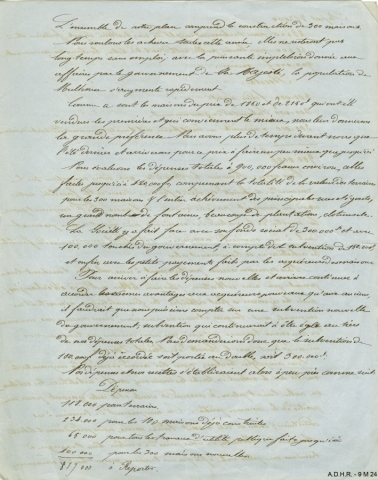 L'ensemble de notre plan comprend la construction de 300 maisons.
Nous voulons les achever toutes cette année, elles ne resteront pas
longtemps sans emploi, avec la puissante impulsion donnée aux
affaires par le gouvernement de Sa Majesté, la population de
Mulhouse s'augmente rapidement.
Comme ce sont les maisons du prix de
vendues les premières et qui conviennent le mieux, nous leur donnons
la grande préférence. Nous avons plus de temps devant nous que
l'été dernier et arriverons pour ce prix à faire un peu mieux que jusqu'ici
Nous évaluons les dépenses totales à 900,000 francs environ, celles
faites jusqu'ici comprennent la totalité de la valeur des terrains
pour les 300 maisons & l'entier achèvement des principales rues et égouts,
un grand nombre de fontaines, beaucoup de plantations, clôtures etc.
La Société y a fait face avec son fonds social de 300,000 f et avec
100,000 touchés du gouvernement, à compte de la subvention de 150 000f
et enfin avec les petits payements faits par les acquéreurs de maisons
Pour arriver à faire les dépenses nouvelles et arriver continuer à
accorder les mêmes avantages aux acquéreurs nouveaux qu'aux anciens,
il faudrait que nous puissions compter sur une subvention nouvelle
du gouvernement, subvention qui continuerait à être égale au tiers
de nos dépenses totales. Nous demanderions donc que la subvention de
150 000f déjà accordée soit portée au double, soit 300,000 f.
Nos dépenses et nos recettes s'établiraient alors à peu près comme suit:
Dépenses
118.000 pour terrains
234.000 pour les maisons déjà construites
65 000 pour tous les travaux d'utilité publique faits jusqu'ici
400 000 pour les 200 maisons nouvelles
817 000 à Reporter.
A.D.H.R. - 9 M 24